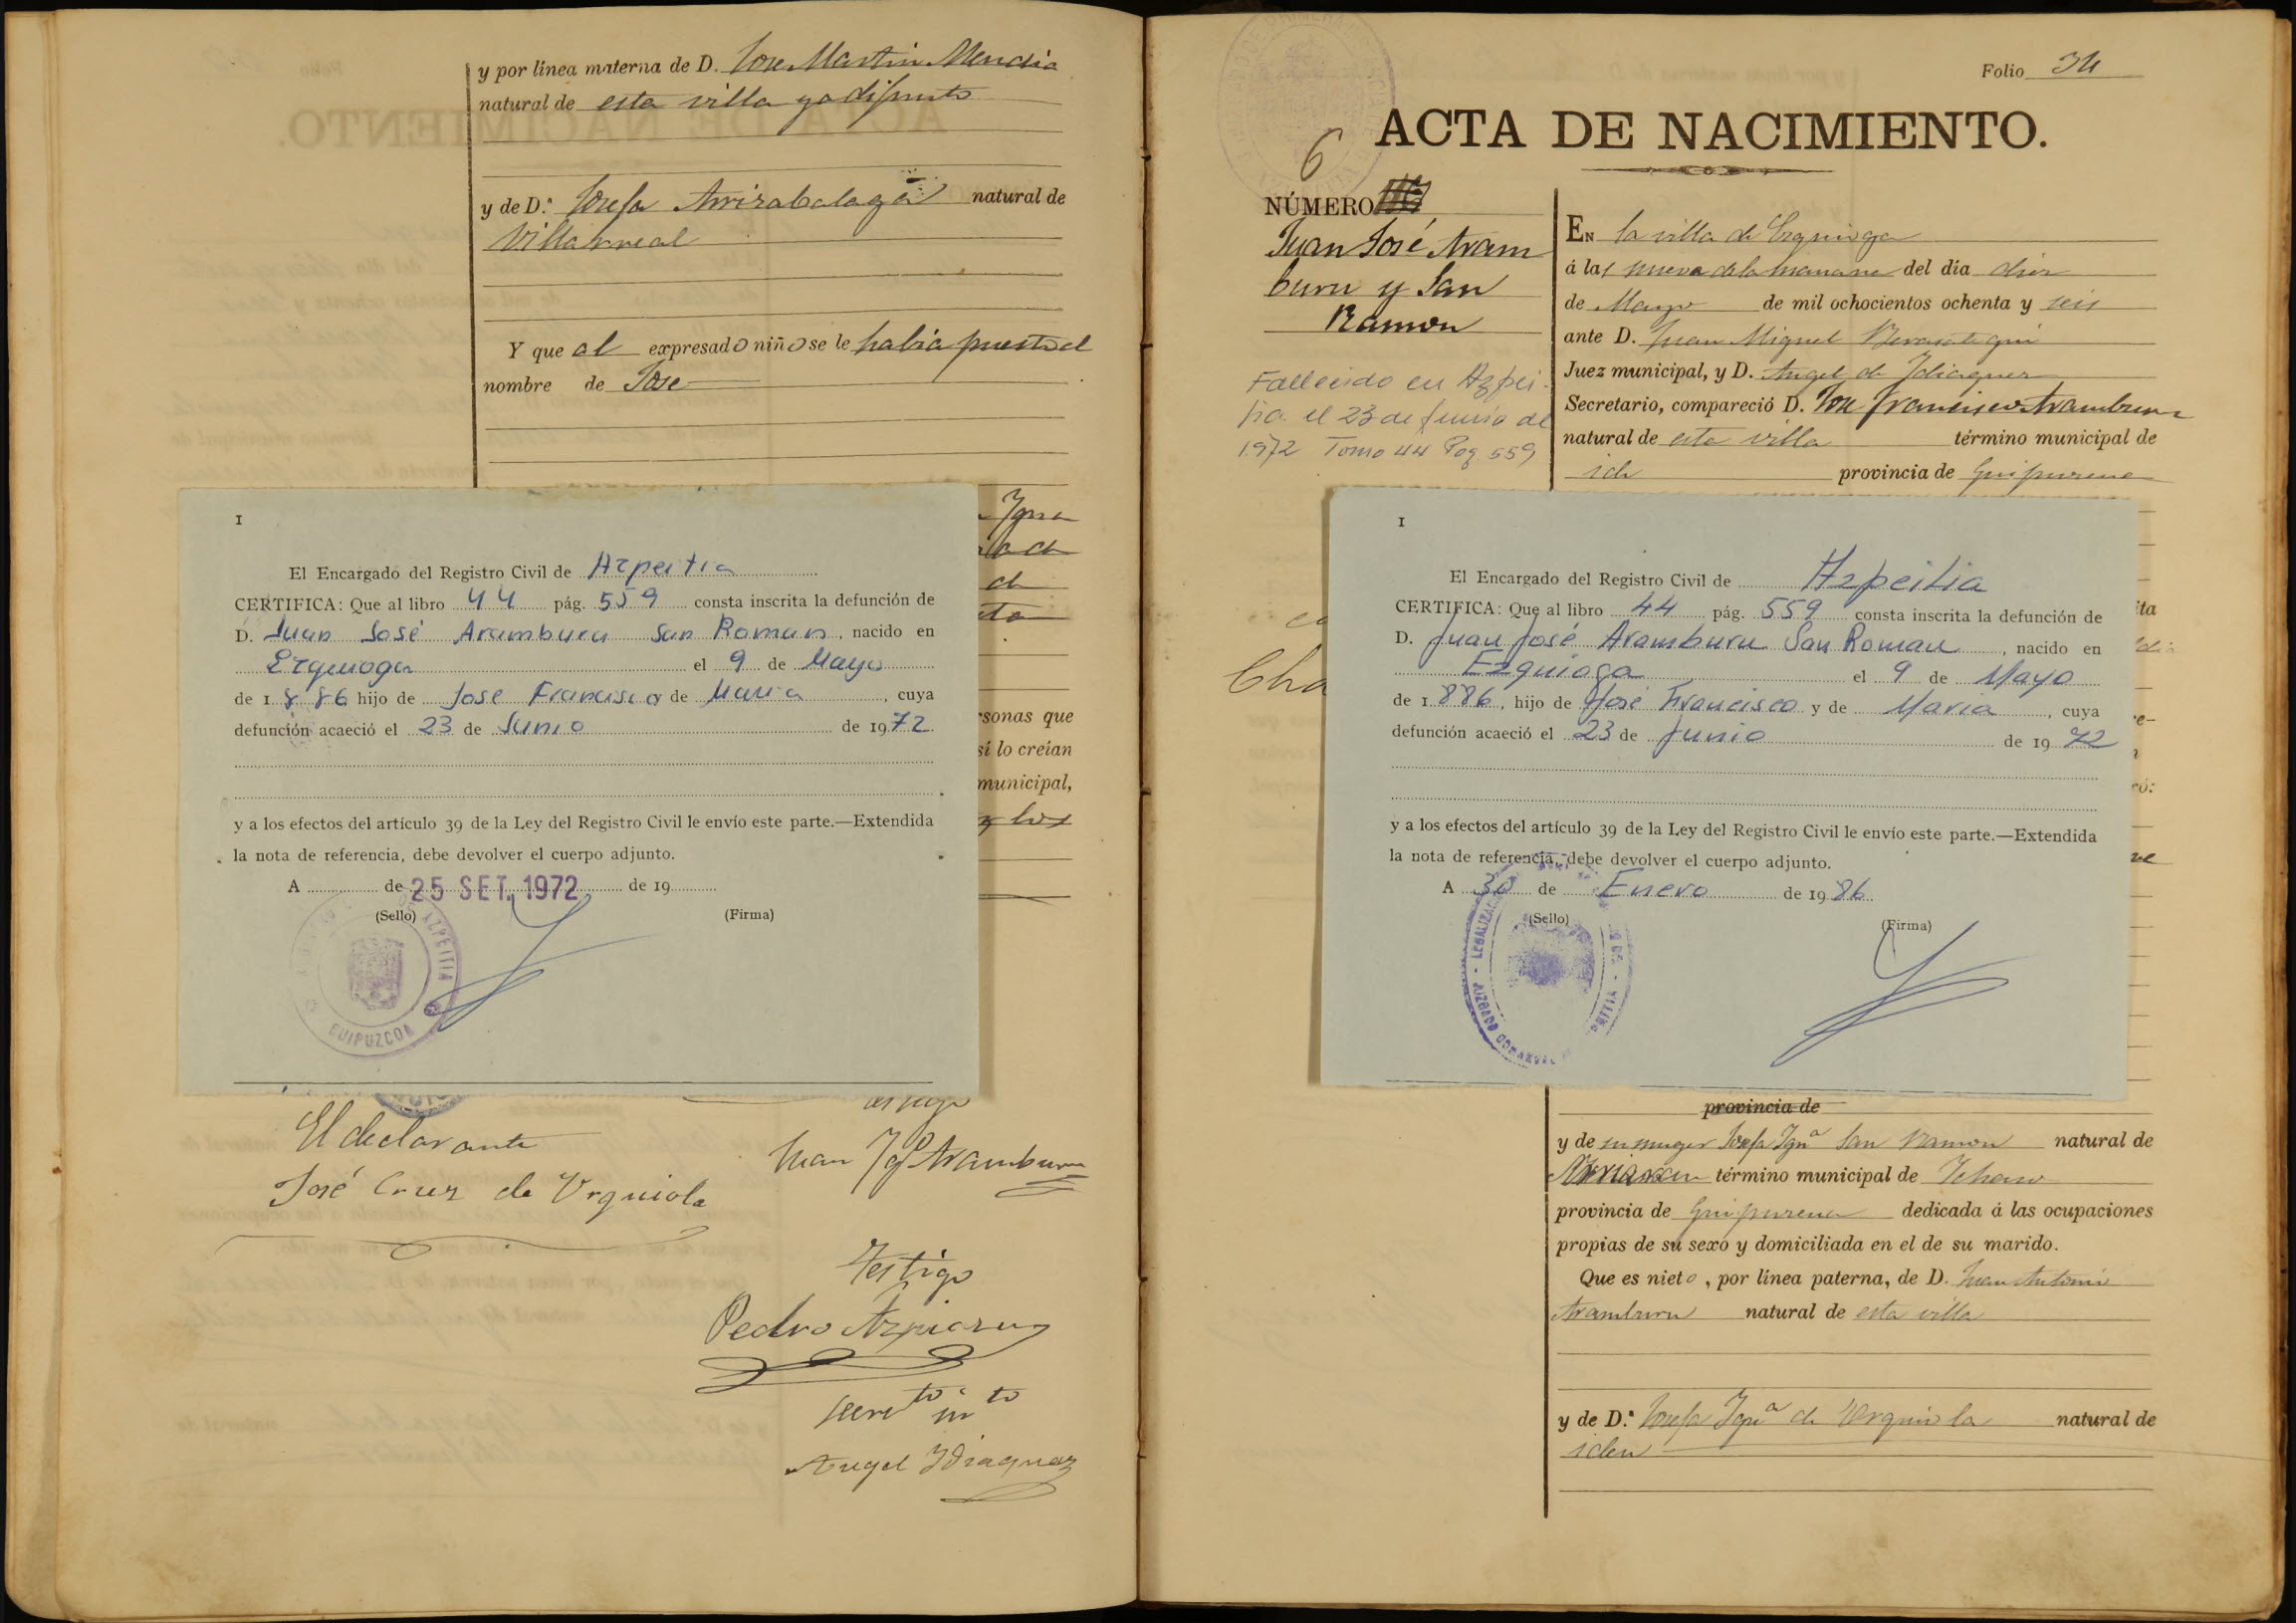 y por línea materna de D. Jose Martin Mendia
natural de esta villa ya difunto
y de D.ª Josefa Arrizabalaga natural de
Villarreal
Y que al expresado niño se le habia puesto el
nombre de Jose
I
El Encargado del Registro Civil de Azpeitia
CERTIFICA: Que al libro 44 pág. 559 consta inscrita la defunción de
D. Juan José Aramburu San Roman, nacido en
Ezquioga el 9 de Mayo
de 1886 hijo de José Francisco y de Maria, cuya
defunción acaeció el 23 de Junio de 1972.
y a los efectos del artículo 39 de la Ley del Registro Civil le envío este parte.—Extendida
la nota de referencia, debe devolver el cuerpo adjunto.
A de 25 SET. 1972 de 19
(Sello) (Firma)
AZPEITIA
GUIPUZCOA
sonas que
sí lo creían
municipal,
y los
El declarante
José Cruz de Urquiola
Juan Ygº Aramburu
Testigo
Pedro Azpiazu
Angel Ydiaquez
Folio 34
ACTA DE NACIMIENTO.
6
NÚMERO
Juan José Aram
buru y San
Ramon
Fallecido en Azpei-
tia el 23 de Junio de
1972 Tomo 44 Pag 559
EN la villa de Ezquioga
á las nueve de la manana del día diez
de Mayo de mil ochocientos ochenta y seis
ante D. Juan Miguel Berasategui
Juez municipal, y D. Angel de Ydiaquez
Secretario, compareció D. Jose Francisco Aramburu
natural de esta villa término municipal de
id provincia de Guipuzcoa
I
El Encargado del Registro Civil de Azpeitia
CERTIFICA: Que al libro 44 pág. 559 consta inscrita la defunción de
D. Juan José Aramburu San Roman, nacido en
Ezquioga el 9 de Mayo
de 1886, hijo de José Francisco y de Maria, cuya
defunción acaeció el 23 de Junio de 1972
y a los efectos del artículo 39 de la Ley del Registro Civil le envío este parte.—Extendida
la nota de referencia, debe devolver el cuerpo adjunto.
A 30 de Enero de 1986
(Sello) (Firma)
provincia de
y de su muger Josefa Ygnª San Ramon natural de
término municipal de Ichaso
provincia de Guipuzcoa dedicada á las ocupaciones
propias de su sexo y domiciliada en el de su marido.
Que es nieto, por línea paterna, de D. Juan Antonio
Aramburu natural de esta villa
y de D.ª Josefa Ygnª de Urquiola natural de
iden